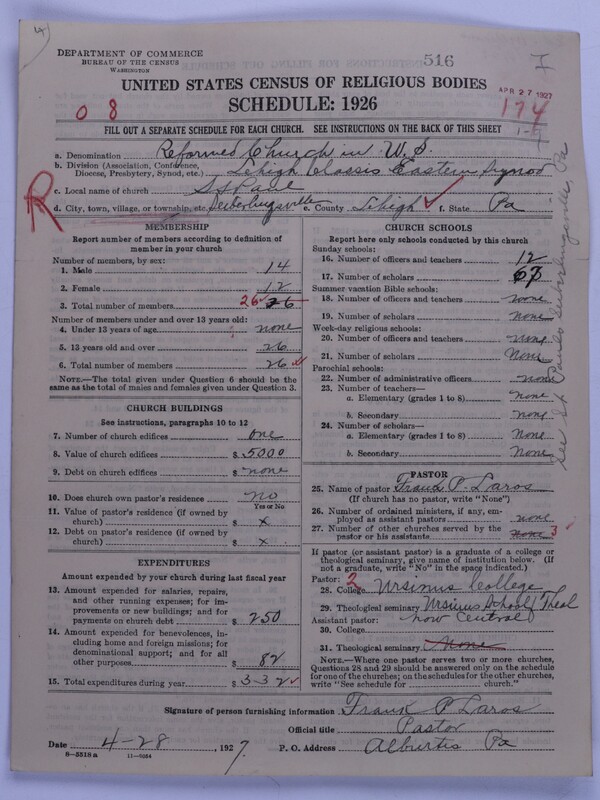 4
516
I
DEPARTMENT OF COMMERCE
BUREAU OF THE CENSUS
WASHINGTON
UNITED STATES CENSUS OF RELIGIOUS BODIES
APR 27 1927
SCHEDULE: 1926
0 8
174
1-5
FILL OUT A SEPARATE SCHEDULE FOR EACH CHURCH. SEE INSTRUCTIONS ON THE BACK OF THIS SHEET
a. Denomination Reformed Church in U.S.
b. Division (Association, Conference, Diocese, Presbytery, Synod, etc.) Lehigh Classis Eastern Synod
c. Local name of church St Paul
R
d. City, town, village, or township, etc. Seiberlingsville e. County Lehigh ✓ f. State Pa
MEMBERSHIP
Report number of members according to definition of
member in your church
Number of members, by sex:
1. Male 14
2. Female 12
3. Total number of members 26 26
Number of members under and over 13 years old:
4. Under 13 years of age none
5. 13 years old and over 26
6. Total number of members 26 ✓
NOTE.—The total given under Question 6 should be
the same as the total of males and females given under Question 3.
CHURCH BUILDINGS
See instructions, paragraphs 10 to 12
7. Number of church edifices one
8. Value of church edifices $ 5000
9. Debt on church edifices $ none
10. Does church own pastor's residence no
Yes or No
11. Value of pastor's residence (if owned by
church) $ x
12. Debt on pastor's residence (if owned by
church) $ x
EXPENDITURES
Amount expended by your church during last fiscal year
13. Amount expended for salaries, repairs,
and other running expenses; for im-
provements or new buildings; and for
payments on church debt $ 250
14. Amount expended for benevolences, in-
cluding home and foreign missions; for
denominational support; and for all
other purposes $ 82
15. Total expenditures during year $ 332 ✓
CHURCH SCHOOLS
Report here only schools conducted by this church
Sunday schools:
16. Number of officers and teachers 12
17. Number of scholars 63
Summer vacation Bible schools:
18. Number of officers and teachers none
19. Number of scholars None
Week-day religious schools:
20. Number of officers and teachers None
21. Number of scholars None
Parochial schools:
22. Number of administrative officers none
23. Number of teachers—
a. Elementary (grades 1 to 8) none
b. Secondary None
24. Number of scholars—
a. Elementary (grades 1 to 8) None
b. Secondary None
PASTOR
25. Name of pastor Frank P. Laros
(If church has no pastor, write "None")
26. Number of ordained ministers, if any, em-
ployed as assistant pastors none
27. Number of other churches served by the
pastor or his assistants None 3 ✓
If pastor (or assistant pastor) is a graduate of a college or
theological seminary, give name of institution below. (If
not a graduate, write "No" in the space indicated.)
Pastor: 2
28. College Ursinus College
29. Theological seminary Ursinus School Theol
Assistant pastor: now Central
30. College
31. Theological seminary None
NOTE.—Where one pastor serves two or more churches,
Questions 28 and 29 should be answered only on the schedule
for one of the churches; on the schedules for the other churches,
write "See schedule for church."
Signature of person furnishing information Frank P Laros
Official title Pastor
Date 4-28, 1927. P. O. Address Alburtis Pa
8-5518 a 11-9034